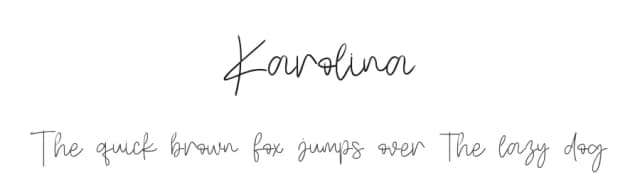 Karolina
The quick brown fox jumps over The lazy dog